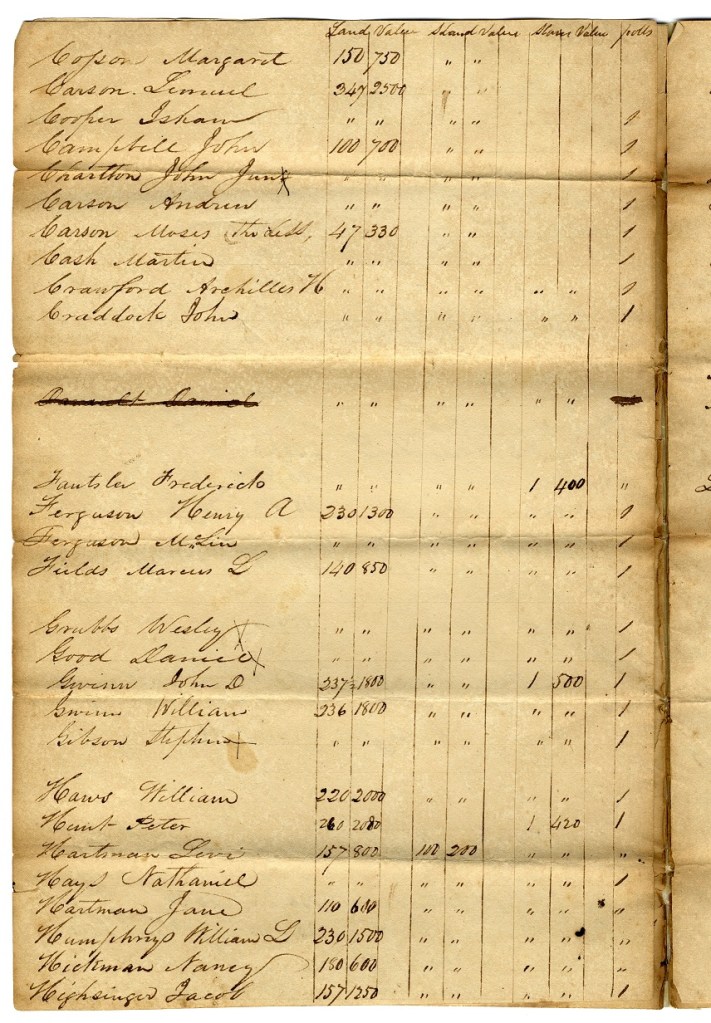 Land Value SLand Value Slaves Value polls
Copson Margaret 150 750 " "
Carson Lemuel 347 2500 " "
Cooper Isham " " " " 1
Campbell John 100 700 " " 1
Charlton John Junr " " " " 1
Carson Andrew " " " " 1
Carson Moses 47 330 " " 1
Cash Martin " " " " 1
Crawford Archilles H " " " " " " 1
Craddock John " " " " " " 1
Daniel " " " " " "
Fautsler Frederick " " " " 1 400 "
Ferguson Henry A 230 1300 " " " " 1
Ferguson McLin " " " " " " 1
Fields Marcus L 140 850 " " " " 1
Grubbs Wesley " " " " " " 1
Good Daniel " " " " " " 1
Gwinn John D 237½ 1800 " " 1 500 1
Gwinn William 236 1800 " " " " 1
Gibson Stephen " " " " " " 1
Haws William 220 2000 " " " " 1
Hunt Peter 260 2080 1 420 1
Hartman Levi 157 800 100 200 " " "
Hays Nathaniel " " " " " " 1
Hartman Jane 110 600 " " " "
Humphrys William L 230 1500 " " " " "
Hickman Nancy 180 600 " " " " "
Highsinger Jacob 157 1250 " " " " 1